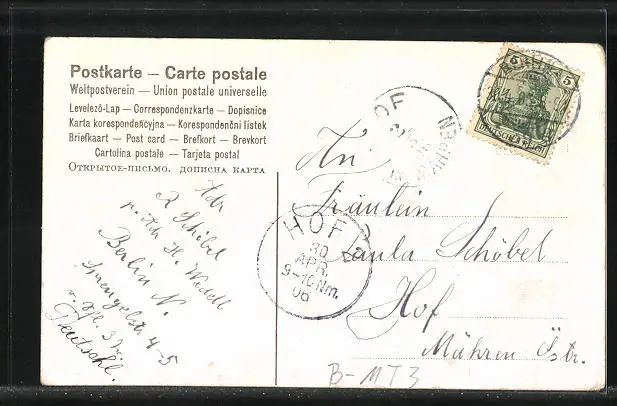 Postkarte — Carte postale
Weltpostverein — Union postale universelle
Levelező-Lap — Correspondenzkarte — Dopisnice
Karta korespondencyjna — Korespondenční lístek
Briefkaart — Post card — Brefkort — Brevkort
Cartolina postale — Tarjeta postal
Открытое письмо. дописна карта
Adr
R. Schöbel
Adr. H.
Berlin N.
Sprengelstr 4-5
Deutschl.
5 5
DEUTSCHES REICH
HOF
MÄHREN
HOF
30
APR.
9-10 Nm.
06
An
Fräulein
Paula Schöbel
Hof
Mähren Östr.
B-MT3